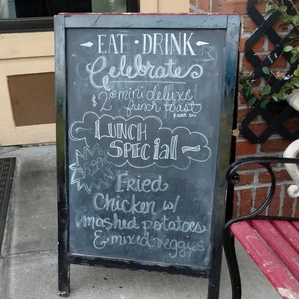 EAT · DRINK
Celebrate
$2 mini deluxe
french toast
add on
LUNCH
SPECIAL
Fried
Chicken w/
mashed potatoes
& mixed veggies